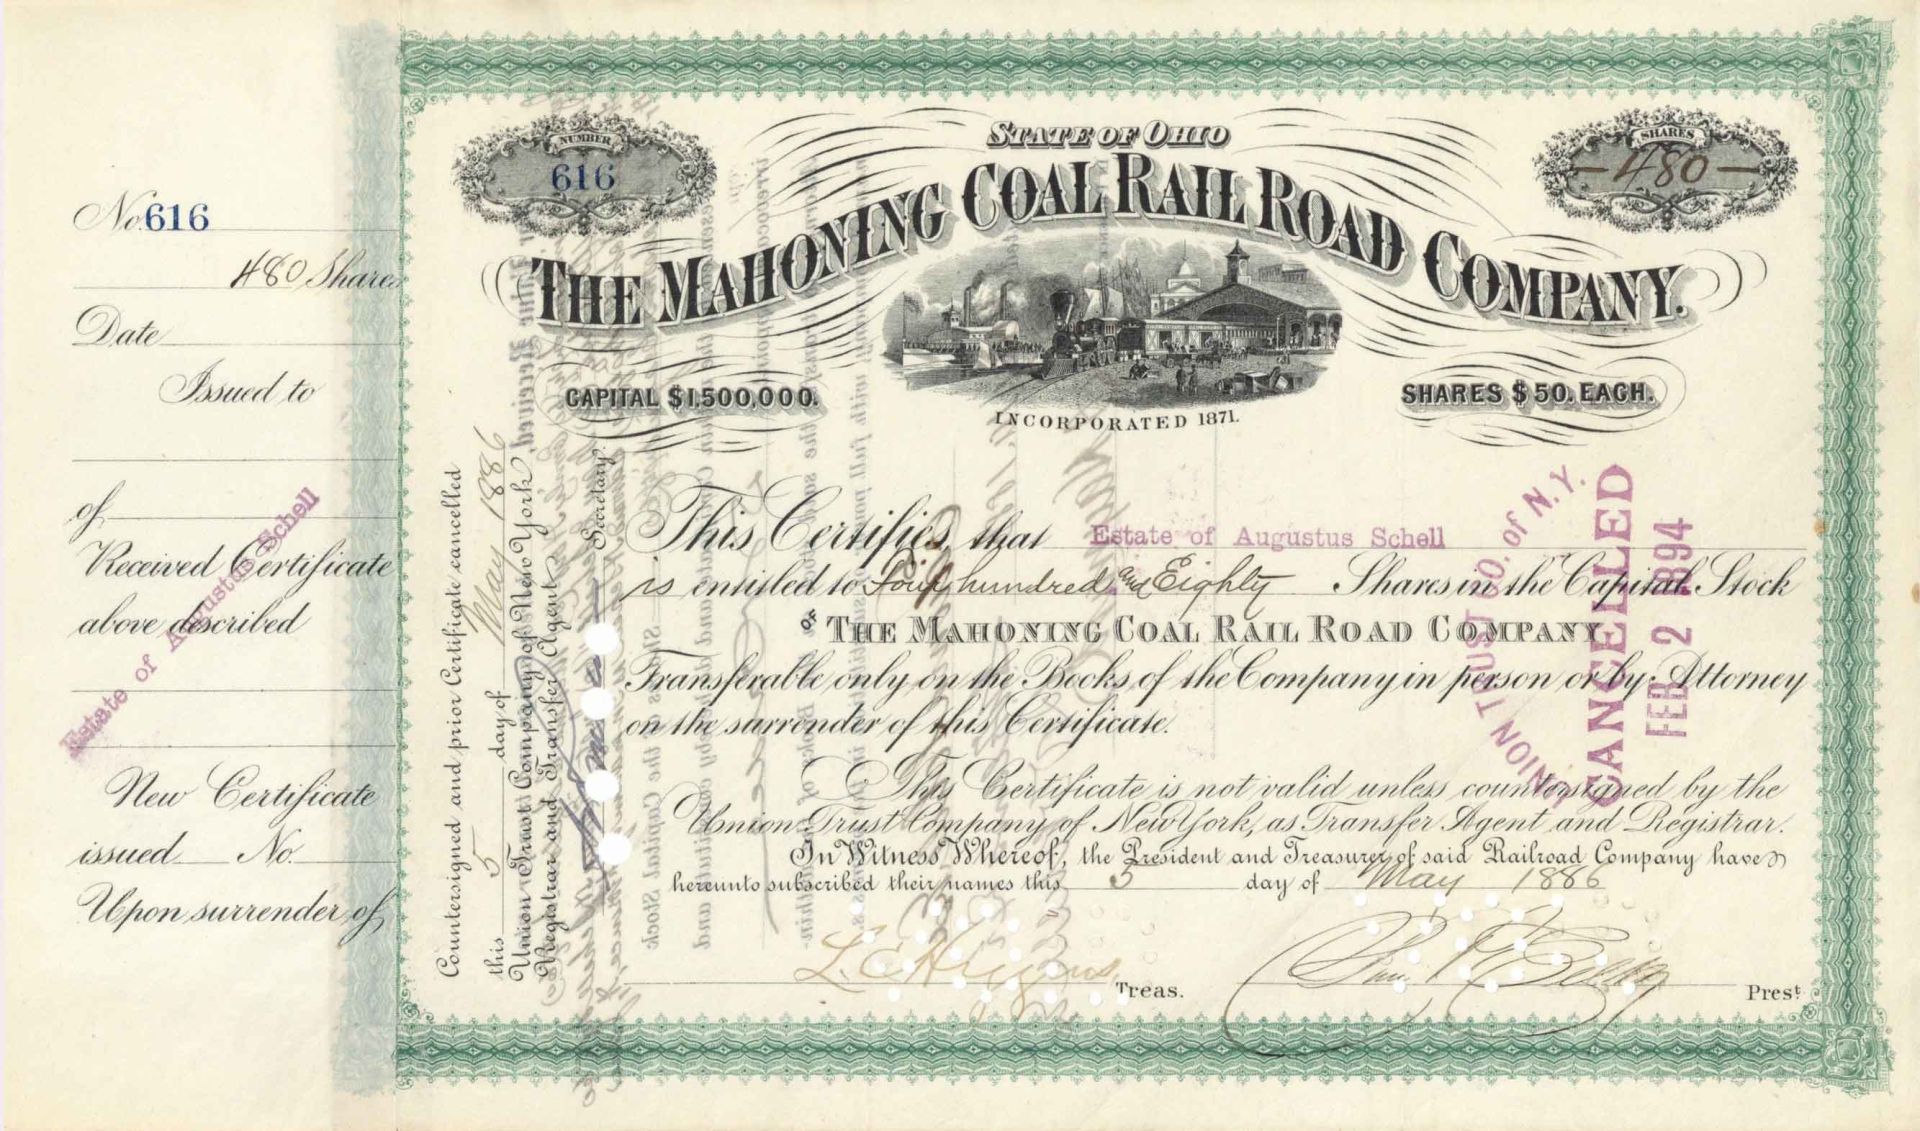 No. 616
480 Shares
Date
Issued to
of
Received Certificate
above described
Estate of Augustus Schell
New Certificate
issued No.
Upon surrender of
Countersigned and prior Certificate cancelled
this 5 day of May 1886
Union Trust Company of New York
Registrar and Transfer Agent
Secretary.
NUMBER
616
STATE OF OHIO
SHARES
—480—
THE MAHONING COAL RAIL ROAD COMPANY.
CAPITAL $1,500,000.
SHARES $50. EACH.
INCORPORATED 1871.
This Certifies, that Estate of Augustus Schell
is entitled to Four hundred and Eighty Shares in the Capital Stock
OF THE MAHONING COAL RAIL ROAD COMPANY
Transferable only on the Books of the Company in person or by Attorney
on the surrender of this Certificate.
This Certificate is not valid unless countersigned by the
Union Trust Company of New York, as Transfer Agent and Registrar.
In Witness Whereof, the President and Treasurer of said Railroad Company have
hereunto subscribed their names this 5 day of May 1886
L E Higgins Treas.
Prest
UNION TRUST CO. of N.Y.
CANCELLED
FEB 2 1894